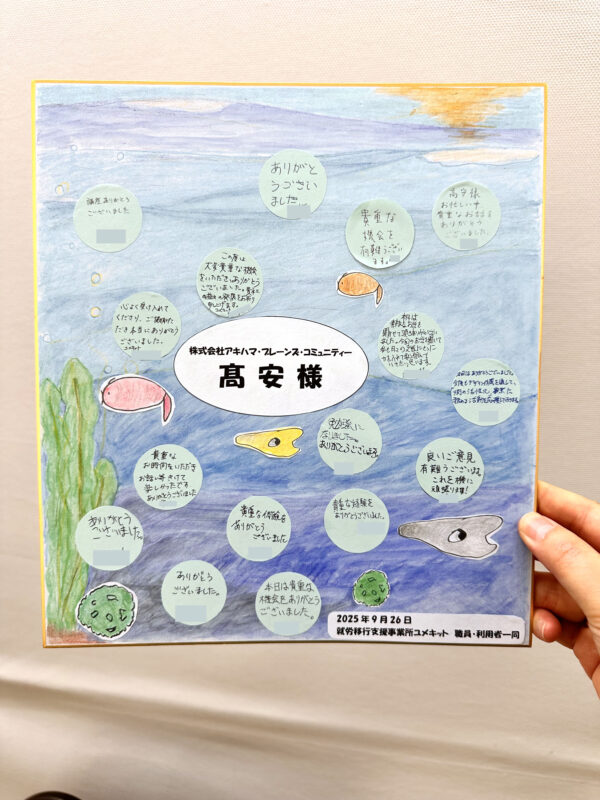 ありがと
うござい
ました。
講座ありがとう
ございました
貴重な
機会を
有難うござい
ます。
高安様
お忙しい中
貴重なお話を
ありがとう
ございました。
この度は
大変貴重な機会
をいただきありがとう
ございました。
心よく受け入れて
くださり、ご協力いた
だき本当にありがとう
ございました。
株式会社アキハマ・ブレーンズ・コミュニティー
髙安様
本日はありがとうございました。
勉強に
なりました。
ありがとうございます。
良いご意見
有難うございます。
これを機に
頑張ります!
貴重な
お時間をいただき
お話し等さけて
楽しかったです
ありがとうございました
ありがとう
ございました。
貴重な体験を
ありがとう
ございました
貴重な経験を
ありがとうございました。
ありがとう
ございました。
本日は貴重な
機会をありがとう
ございました。
2025年9月26日
就労移行支援事業所ユメキット 職員・利用者一同